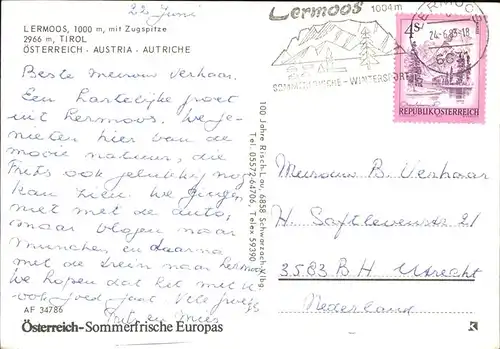 22 Juni
LERMOOS, 1000 m, mit Zugspitze
2966 m, TIROL
ÖSTERREICH - AUSTRIA - AUTRICHE
Beste Mevrouw Verhaar.
Een hartelijke groet
uit Lermoos. We ge-
nieten hier van de
mooie natuur, die
Frits ook gelukkig nog
kan zien. We gingen
niet met de auto,
maar vlogen naar
Munchen en daarna
met de trein naar Lermoos
We hopen dat het met U
ook goed gaat. Vele groetjes
Frits en Mies
AF 34786
Österreich-Sommerfrische Europas
100 Jahre Risch-Lau, 6858 Schwarzach/Vlbg.
Tel. 05572-64706, Telex 59390
Lermoos 1004m
SOMMERFRISCHE - WINTERSPORT
LERMOOS
24-6.83-18
4 S
REPUBLIK ÖSTERREICH
Mevrouw B. Verhaar
H. Saftlevenstr. 21
3583 BH Utrecht
Nederland